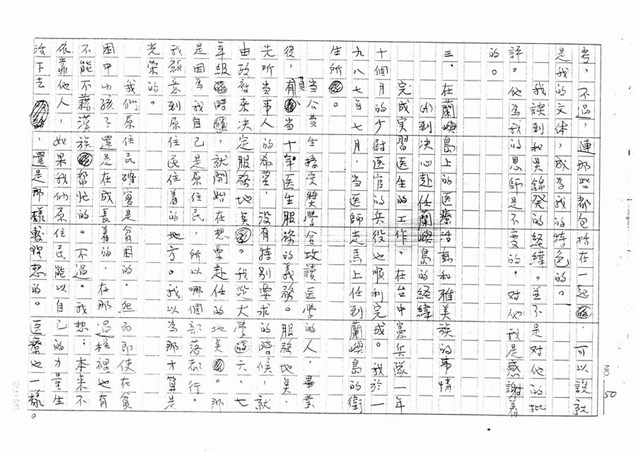 考。不過，連那些都包括在一起，可以說就
是我的文体，成為我的特色的。
我談到和吳錦發的經緯，並不是對他的批
評。他為我的恩師是不變的。對他我是感謝著
的。
三、在蘭嶼島上的医療活動和雅美族的事情
(A)到決心赴任蘭嶼島的經緯
完成實習医生的工作，在台中憲兵隊一年
十個月的少尉医官的兵役也順利完成。我於一
九八七年七月，当医師走馬上任到蘭嶼島的衛
生所。
当公費生接受獎學金攻讀医學的人，畢業
後，有当十年医生服務的義務。服務地點，
先听当事人的希望，沒有特別要求的時候，就
由政府來決定服務地點。我從大學六、七
年級時，就開始在想要赴任的地點。那
是因為我自己是原住民，所以哪個部落都行。
我願意到原住民住着的地方。我以為那才算是
光榮的。
我們原住民確實是貧困的，然而即使在貧
困中小孩子還是在成長着的，在那過程裡也有
不能不藉漢族幫忙的。不過，我想：本來不
依靠他人，如果我們原住民能以自己的力量生
活下去，還是那樣較理想的。医療也一樣。
50